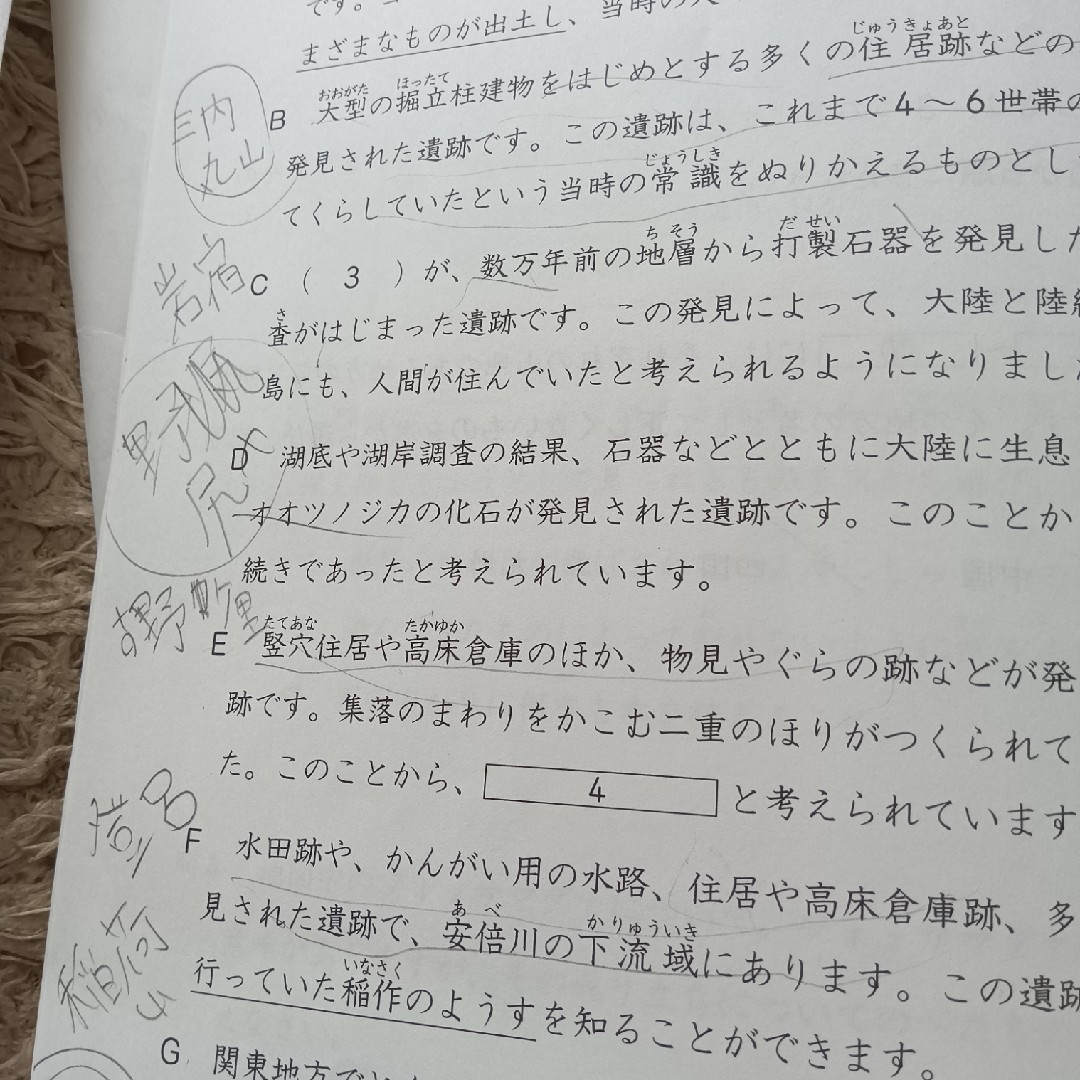 です。
まざまなものが出土し、当時の人
三内
丸山
B 大型の掘立柱建物をはじめとする多くの住居跡などの
おおがた ほったて じゅうきょあと
発見された遺跡です。この遺跡は、これまで4～6世帯の
てくらしていたという当時の常識をぬりかえるものとし
じょうしき
岩宿
C （ 3 ）が、数万年前の地層から打製石器を発見した
ちそう だせい
査がはじまった遺跡です。この発見によって、大陸と陸続
さ
島にも、人間が住んでいたと考えられるようになりました
野尻
D 湖底や湖岸調査の結果、石器などとともに大陸に生息
オオツノジカの化石が発見された遺跡です。このことか
続きであったと考えられています。
吉野ヶ里
E 竪穴住居や高床倉庫のほか、物見やぐらの跡などが発
たてあな たかゆか
跡です。集落のまわりをかこむ二重のほりがつくられて
た。このことから、 4 と考えられています
登呂
F 水田跡や、かんがい用の水路、住居や高床倉庫跡、多
見された遺跡で、安倍川の下流域にあります。この遺跡
あべ かりゅういき
稲荷
山
行っていた稲作のようすを知ることができます。
いなさく
G 関東地方で